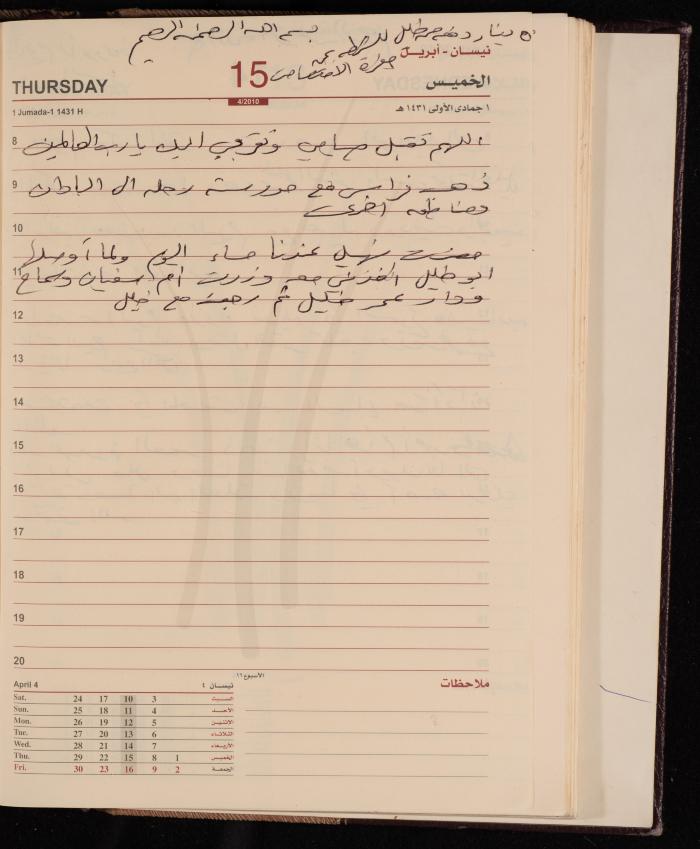 بسم الله الرحمن الرحيم
نيسان - أبريل
THURSDAY
15
4/2010
الخميس
1 Jumada-1 1431 H
١ جمادى الأولى ١٤٣١ هـ
8
اللهم تقبل صيامي وتقربي اليك يا رب العالمين
9
ذهب فراس مع مدرسته رحله الى
ومناطق اخرى
10
عندنا مساء اليوم ولما أوصلها
11
ابو خليل اخذني معه وزرت ام سفيان وسماح
ودار عمر خليل ثم رجعت مع خليل
12
13
14
15
16
17
18
19
20
الأسبوع ١٦
ملاحظات
April 4
نيسان ٤
Sat. 24 17 10 3 السبت
Sun. 25 18 11 4 الأحد
Mon. 26 19 12 5 الاثنين
Tue. 27 20 13 6 الثلاثاء
Wed. 28 21 14 7 الأربعاء
Thu. 29 22 15 8 1 الخميس
Fri. 30 23 16 9 2 الجمعة